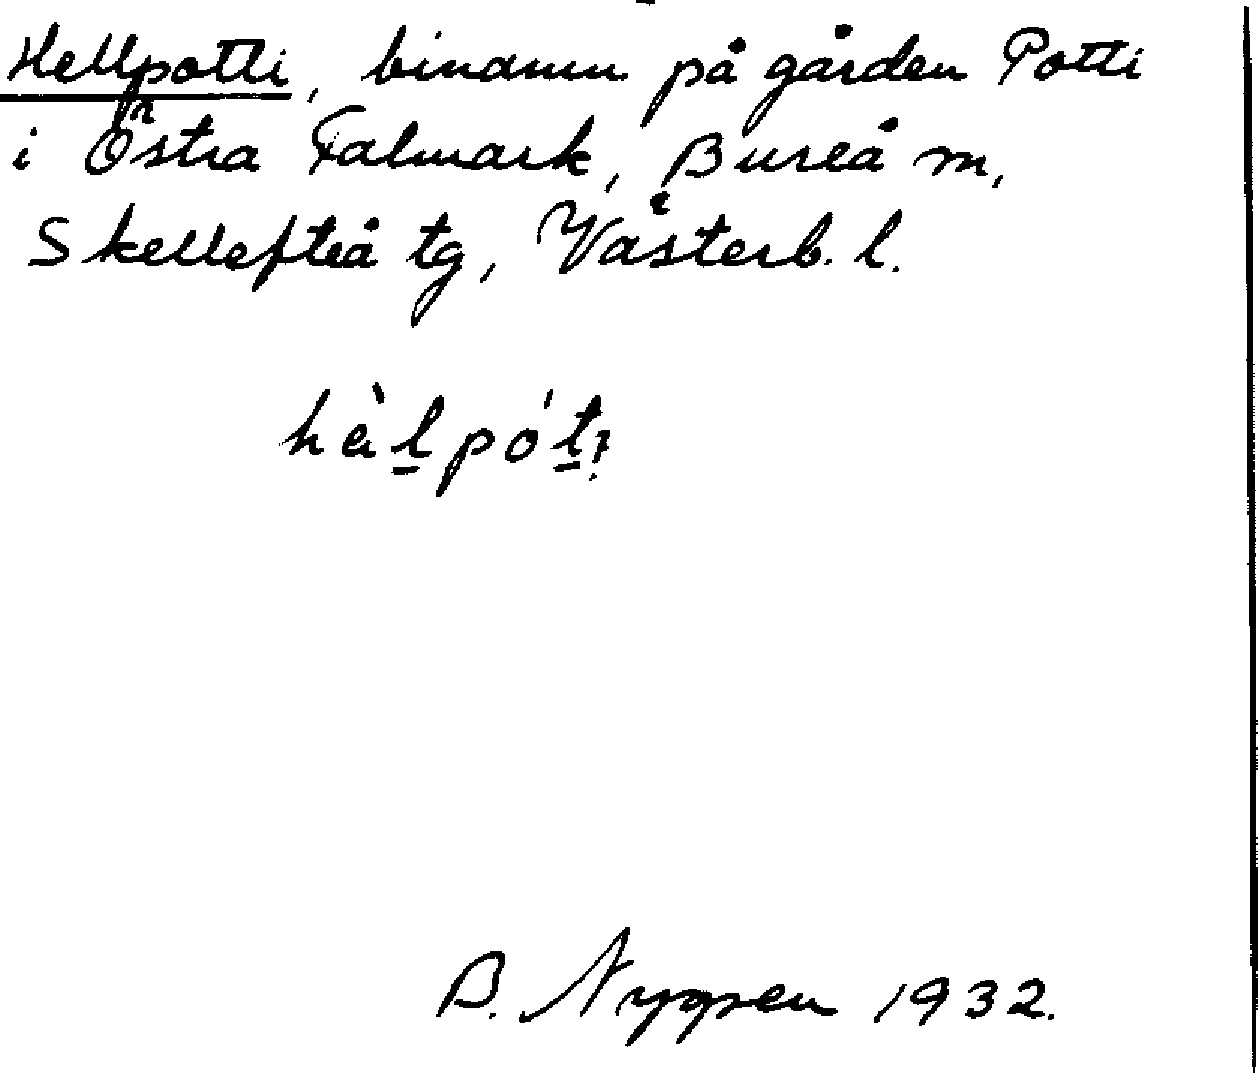 Hellpotti, binamn på gården Potti
i Östra Falmark, Bureå m,
Skellefteå tg, Västerb. l.
B. Nygren 1932.